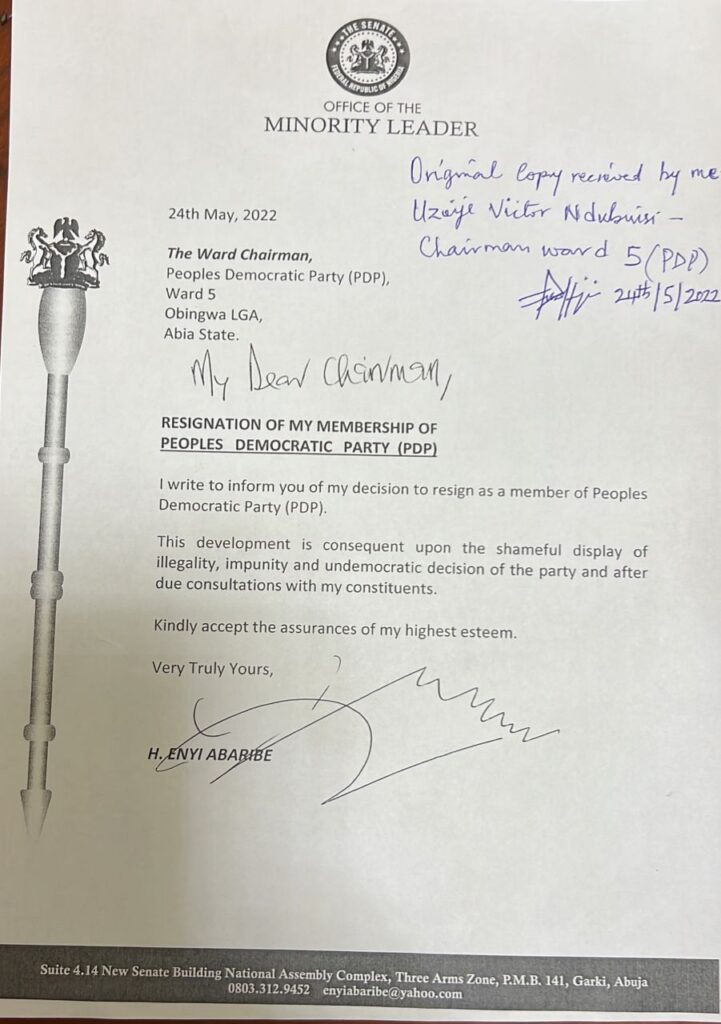 THE SENATE
FEDERAL REPUBLIC OF NIGERIA
OFFICE OF THE
MINORITY LEADER
Original Copy recieved by me
Victor Ndubuisi –
Chairman ward 5 (PDP)
24th/5/2022
24th May, 2022
The Ward Chairman,
Peoples Democratic Party (PDP),
Ward 5
Obingwa LGA,
Abia State.
My Dear Chairman,
RESIGNATION OF MY MEMBERSHIP OF
PEOPLES DEMOCRATIC PARTY (PDP)
I write to inform you of my decision to resign as a member of Peoples
Democratic Party (PDP).
This development is consequent upon the shameful display of
illegality, impunity and undemocratic decision of the party and after
due consultations with my constituents.
Kindly accept the assurances of my highest esteem.
Very Truly Yours,
H. ENYI ABARIBE
Suite 4.14 New Senate Building National Assembly Complex, Three Arms Zone, P.M.B. 141, Garki, Abuja
0803.312.9452 enyiabaribe@yahoo.com